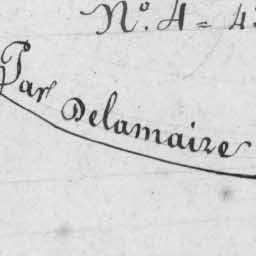 N.º 4 = 4
Par Delamaire